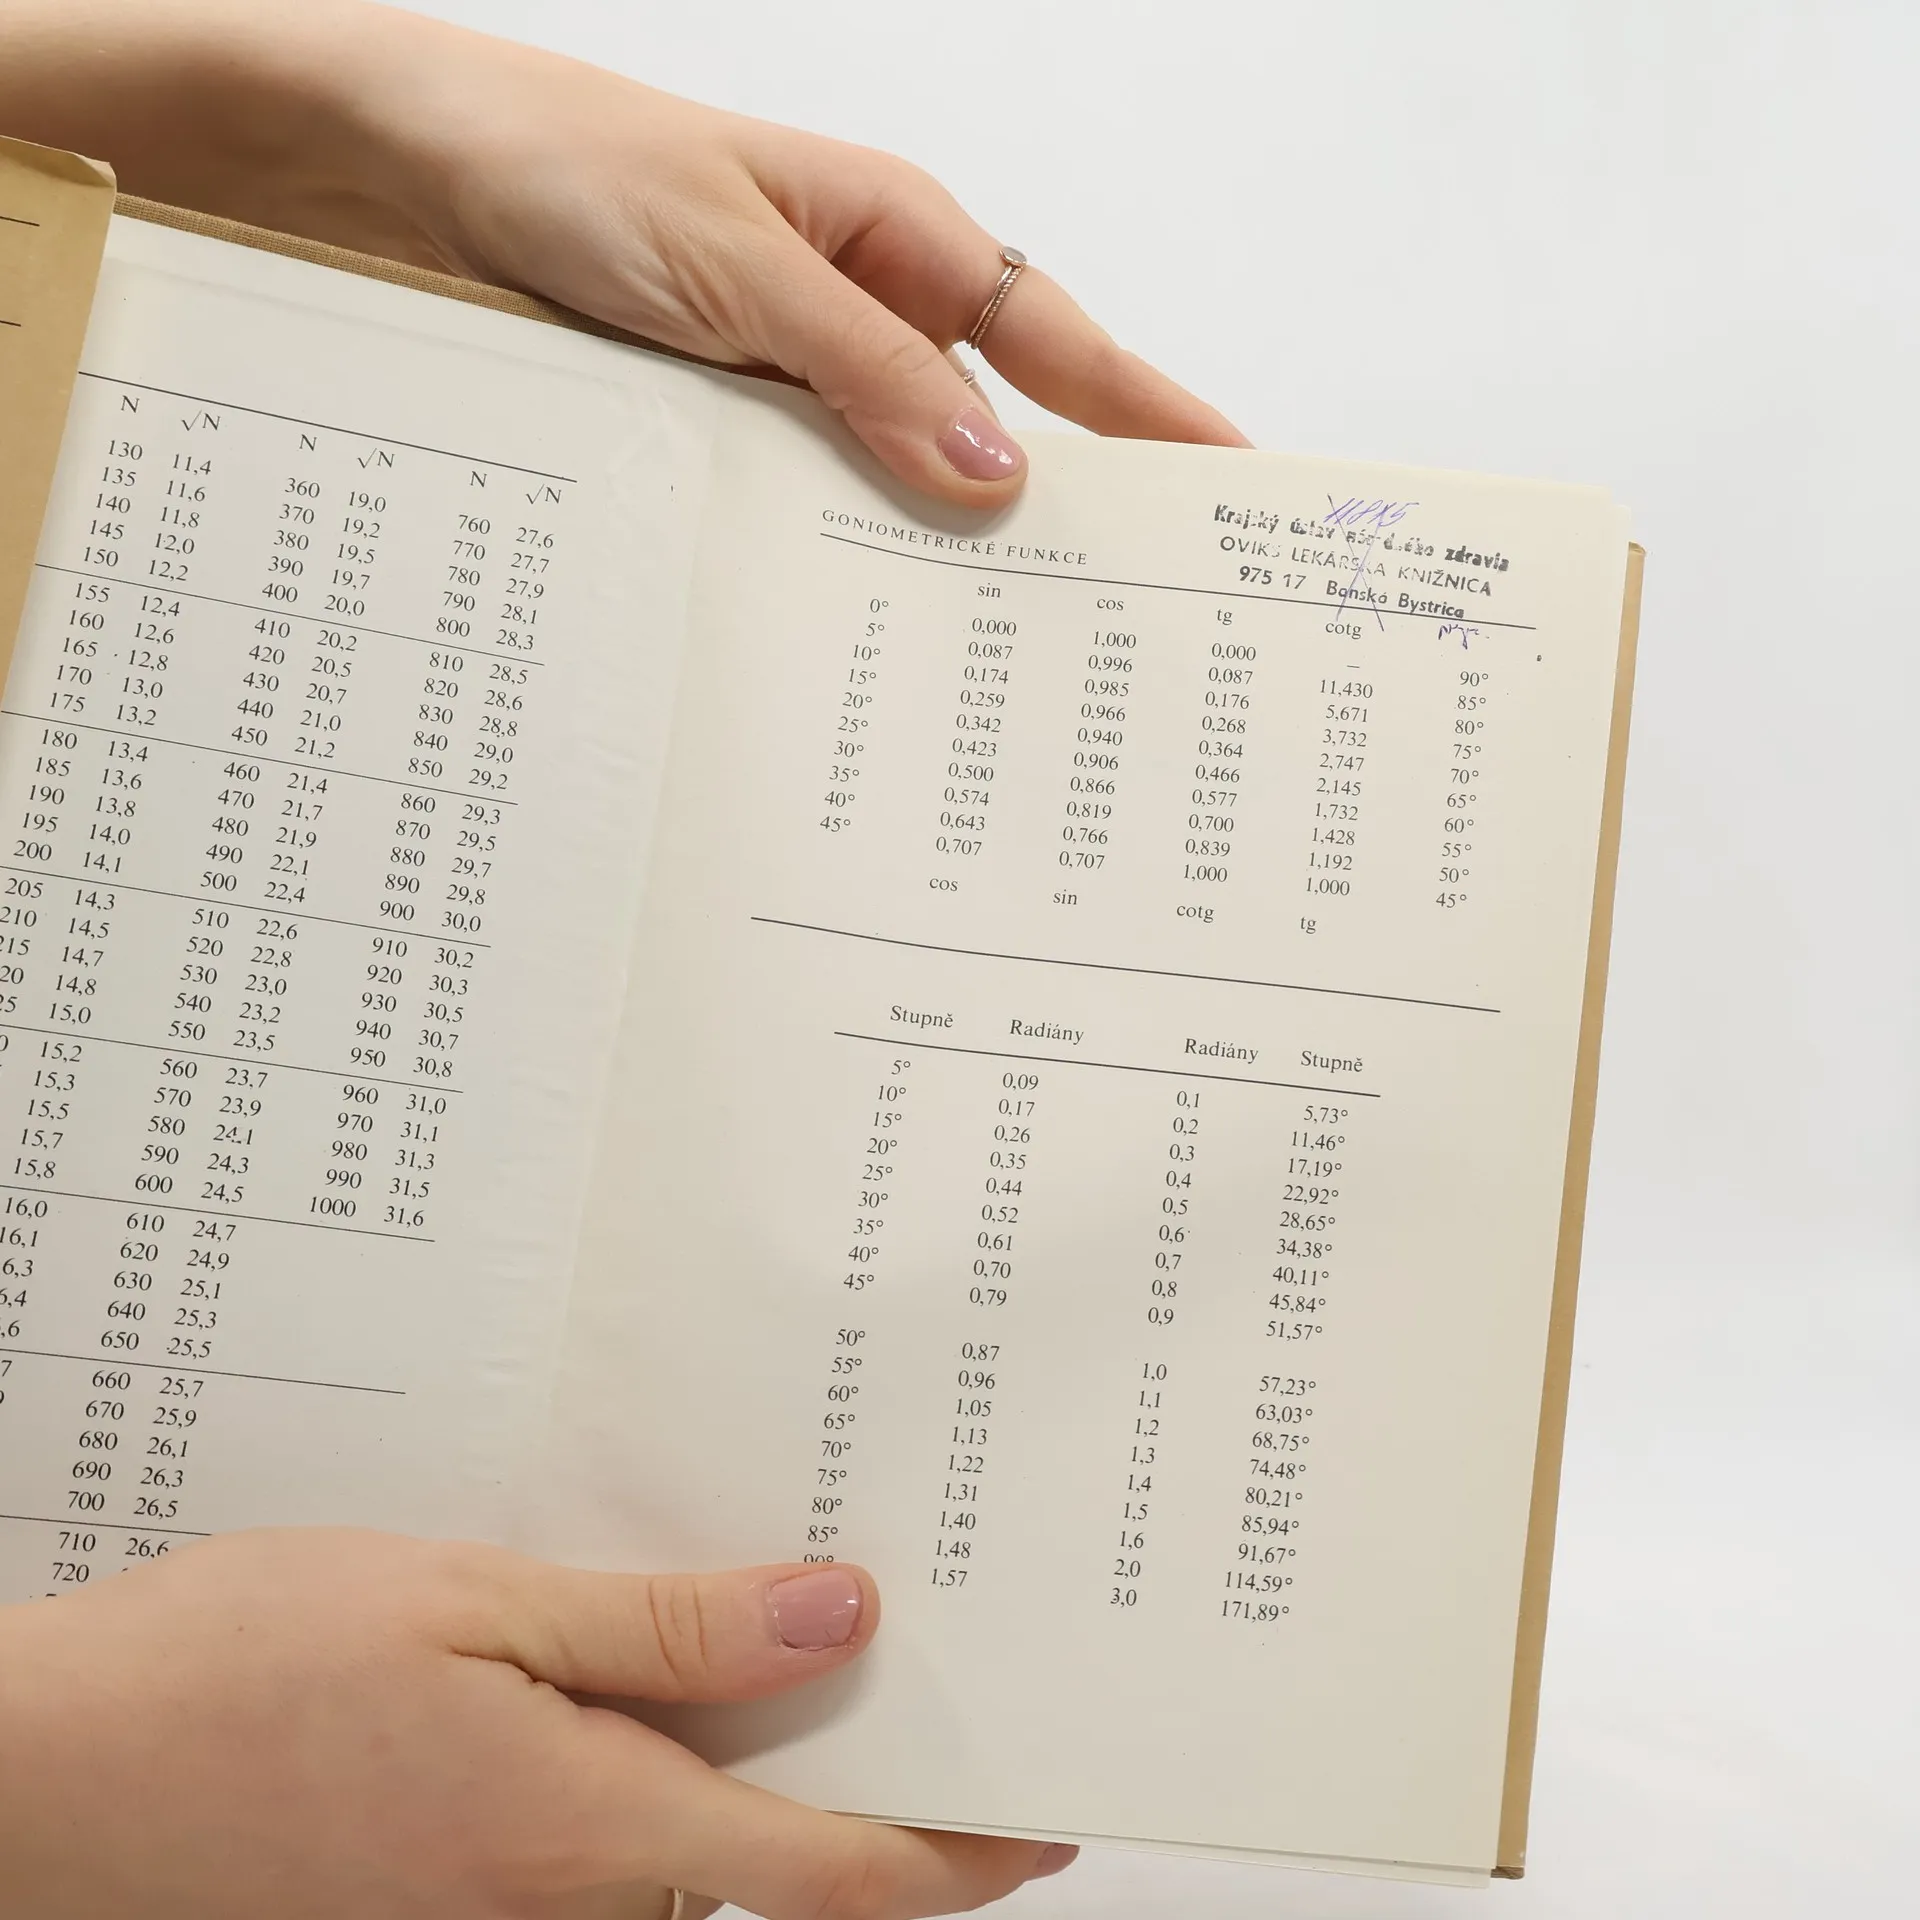 N √N N √N N √N
130 11,4 360 19,0 760 27,6
135 11,6 370 19,2 770 27,7
140 11,8 380 19,5 780 27,9
145 12,0 390 19,7 790 28,1
150 12,2 400 20,0 800 28,3
155 12,4 410 20,2 810 28,5
160 12,6 420 20,5 820 28,6
165 12,8 430 20,7 830 28,8
170 13,0 440 21,0 840 29,0
175 13,2 450 21,2 850 29,2
180 13,4 460 21,4 860 29,3
185 13,6 470 21,7 870 29,5
190 13,8 480 21,9 880 29,7
195 14,0 490 22,1 890 29,8
200 14,1 500 22,4 900 30,0
205 14,3 510 22,6 910 30,2
210 14,5 520 22,8 920 30,3
215 14,7 530 23,0 930 30,5
20 14,8 540 23,2 940 30,7
25 15,0 550 23,5 950 30,8
0 15,2 560 23,7 960 31,0
15,3 570 23,9 970 31,1
15,5 580 24,1 980 31,3
15,7 590 24,3 990 31,5
15,8 600 24,5 1000 31,6
16,0 610 24,7
16,1 620 24,9
6,3 630 25,1
6,4 640 25,3
,6 650 25,5
7 660 25,7
670 25,9
680 26,1
690 26,3
700 26,5
710 26,6
720
GONIOMETRICKÉ FUNKCE
Krajský ústav národného zdravia
OVIKS LEKÁRSKA KNIŽNICA
975 17 Banská Bystrica
sin cos tg cotg
0° 0,000 1,000 0,000 – 90°
5° 0,087 0,996 0,087 11,430 85°
10° 0,174 0,985 0,176 5,671 80°
15° 0,259 0,966 0,268 3,732 75°
20° 0,342 0,940 0,364 2,747 70°
25° 0,423 0,906 0,466 2,145 65°
30° 0,500 0,866 0,577 1,732 60°
35° 0,574 0,819 0,700 1,428 55°
40° 0,643 0,766 0,839 1,192 50°
45° 0,707 0,707 1,000 1,000 45°
cos sin cotg tg
Stupně Radiány Radiány Stupně
5° 0,09 0,1 5,73°
10° 0,17 0,2 11,46°
15° 0,26 0,3 17,19°
20° 0,35 0,4 22,92°
25° 0,44 0,5 28,65°
30° 0,52 0,6 34,38°
35° 0,61 0,7 40,11°
40° 0,70 0,8 45,84°
45° 0,79 0,9 51,57°
50° 0,87 1,0 57,23°
55° 0,96 1,1 63,03°
60° 1,05 1,2 68,75°
65° 1,13 1,3 74,48°
70° 1,22 1,4 80,21°
75° 1,31 1,5 85,94°
80° 1,40 1,6 91,67°
85° 1,48 2,0 114,59°
90° 1,57 3,0 171,89°